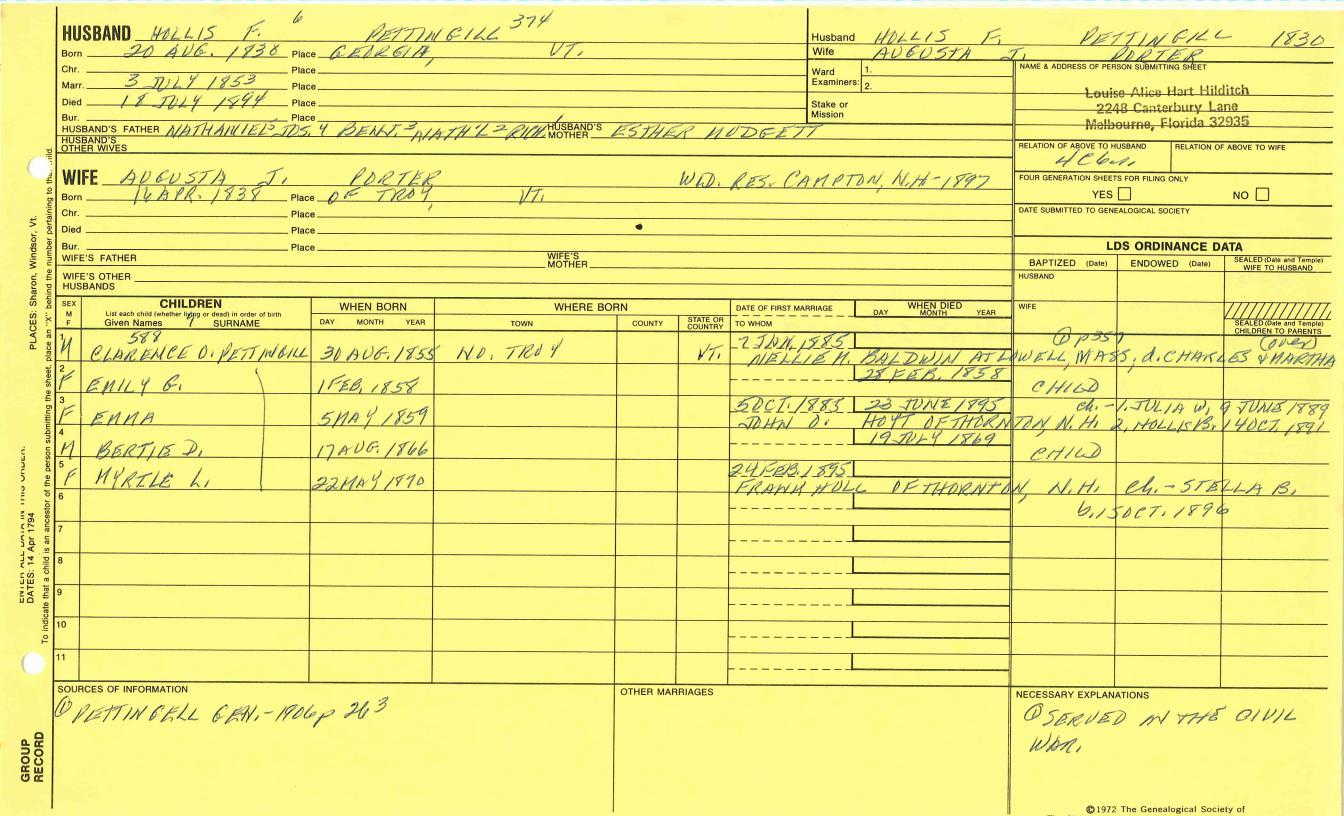 HUSBAND HOLLIS F. 6 PETTINGILL 374
Born 20 AUG. 1838 Place GEORGIA, VT.
Chr. Place
Marr. 3 JULY 1853 Place
Died 18 JULY 1894 Place
Bur. Place
HUSBAND'S FATHER NATHANIEL 5 JOS. 4 BENJ. 3 NATH'L 2 RICH. 1 HUSBAND'S MOTHER ESTHER MUDGETT
HUSBAND'S OTHER WIVES
Husband HOLLIS F. PETTINGILL 1830
Wife AUGUSTA J. PORTER
Ward Examiners: 1.
2.
Stake or Mission
NAME & ADDRESS OF PERSON SUBMITTING SHEET
Louise Alice Hart Hilditch
2248 Canterbury Lane
Melbourne, Florida 32935
RELATION OF ABOVE TO HUSBAND RELATION OF ABOVE TO WIFE
4C6
FOUR GENERATION SHEETS FOR FILING ONLY
YES NO
DATE SUBMITTED TO GENEALOGICAL SOCIETY
WIFE AUGUSTA J. PORTER WID. RES. CAMPTON, N.H.-1897
Born 16 APR. 1838 Place OF TROY, VT.
Chr. Place
Died Place
Bur. Place
WIFE'S FATHER WIFE'S MOTHER
WIFE'S OTHER HUSBANDS
LDS ORDINANCE DATA
BAPTIZED (Date) ENDOWED (Date) SEALED (Date and Temple) WIFE TO HUSBAND
HUSBAND
WIFE
SEALED (Date and Temple) CHILDREN TO PARENTS
SEX M F CHILDREN WHEN BORN WHERE BORN DATE OF FIRST MARRIAGE WHEN DIED
List each child (whether living or dead) in order of birth
Given Names 7 SURNAME DAY MONTH YEAR TOWN COUNTY STATE OR COUNTRY TO WHOM DAY MONTH YEAR
1 588 7 JAN, 1985 ① p357 (over)
M CLARENCE D. PETTINGILL 30 AUG. 1855 NO. TROY VT. NELLIE M. BALDWIN AT LOWELL, MASS, d. CHARLES & MARTHA
2 28 FEB. 1858
F EMILY G. 1 FEB. 1858 CHILD
3 5 OCT. 1883 23 JUNE 1895 ch.-1. JULIA W, 9 JUNE 1889
F EMMA 5 MAY 1859 JOHN O. HOYT OF THORNTON, N.H. 2, HOLLIS B. 14 OCT. 1891
4 19 JULY 1869
M BERTIE D. 17 AUG. 1866 CHILD
5 24 FEB. 1895
F MYRTLE L. 22 MAY 1870 FRANK HULL OF THORNTON, N.H. ch.- STELLA B.
6 b. 15 OCT. 1896
7
8
9
10
11
SOURCES OF INFORMATION
① PETTINGELL GEN.-1906 p 263
OTHER MARRIAGES
NECESSARY EXPLANATIONS
① SERVED IN THE CIVIL
WAR.
©1972 The Genealogical Society of
PLACES: Sharon, Windsor, Vt.
ENTER ALL DATA IN THIS ORDER:
DATES: 14 Apr 1794
To indicate that a child is an ancestor of the person submitting the sheet, place an "X" behind the number pertaining to that child.
GROUP RECORD